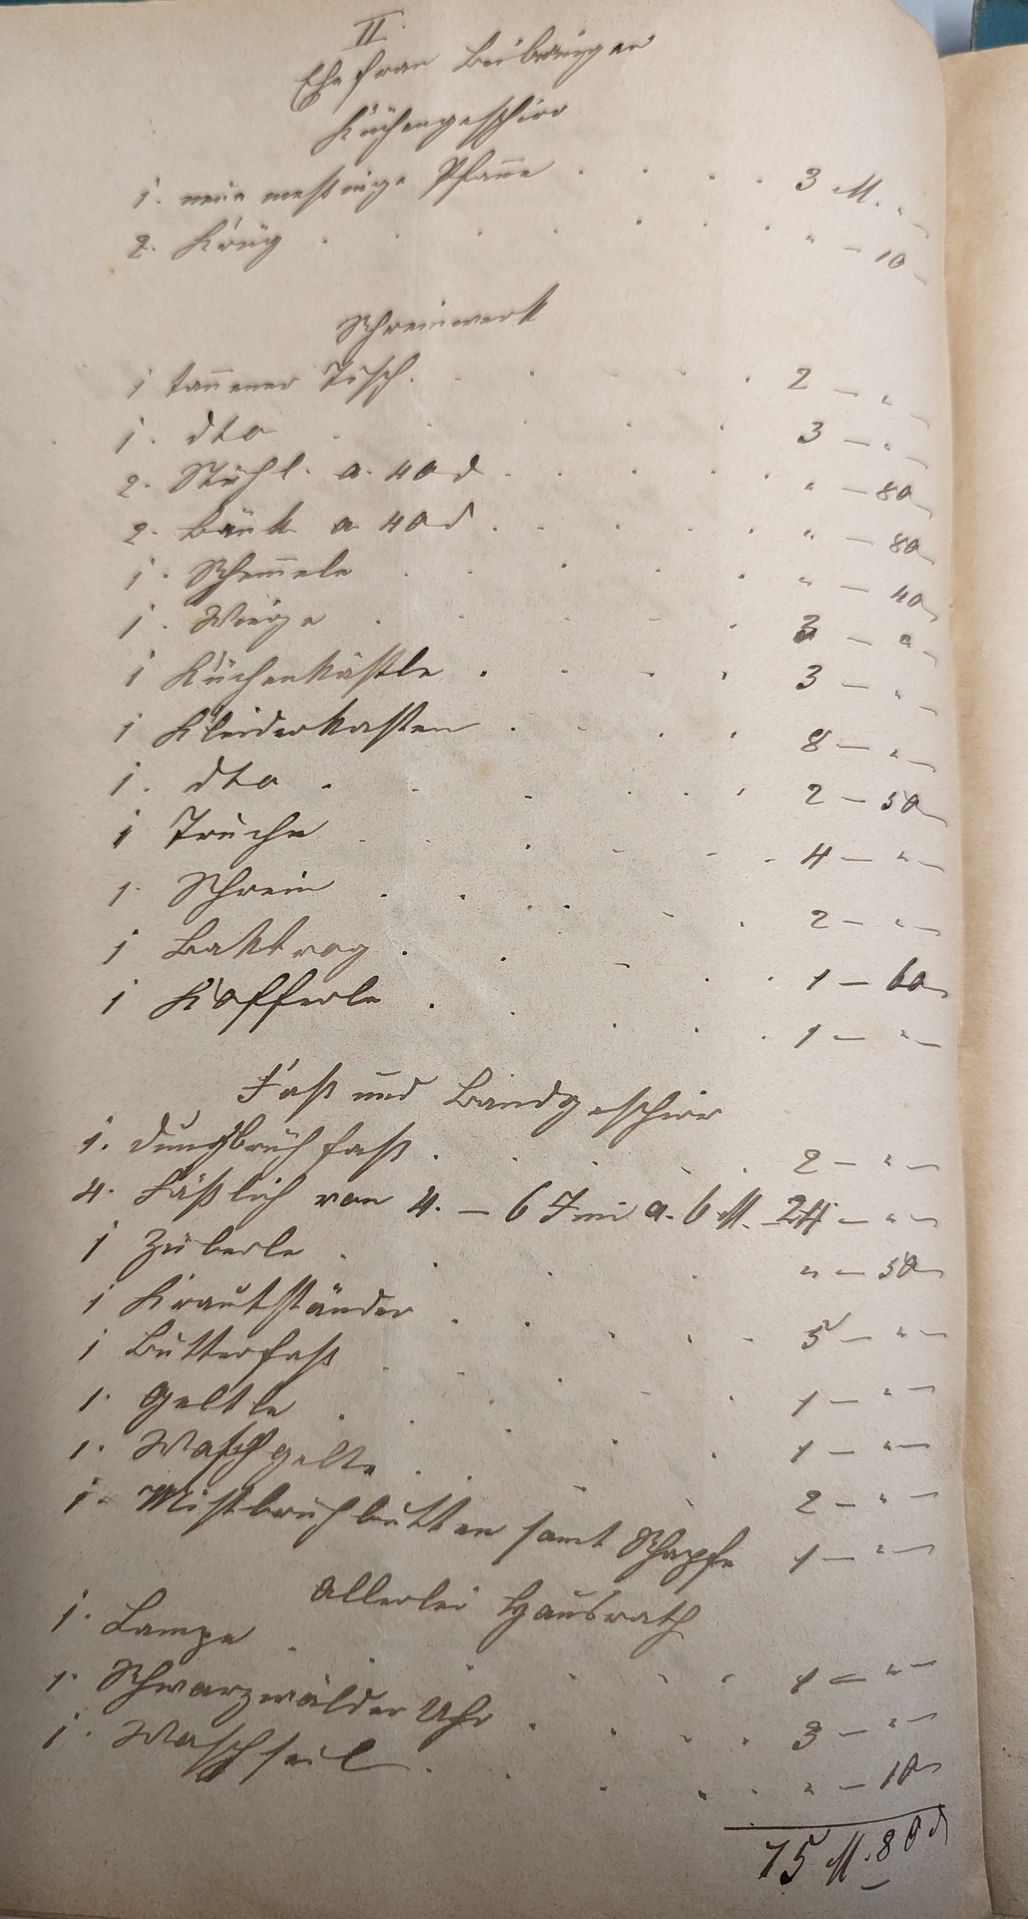 II.
Ehefrau Beibringen
Küchengeschirr
1. neue meßinge Pfanne . . . . 3 M. "
2. Krüg . . . . . . . " — 10
Schreinwerk
1 tannener Tisch. . . . . . 2 — "
1. dto . . . . . 3 — "
2. Stühl. a. 40 d . . . . . " — 80
2. Bänk a 40 d . . . . . " — 80
1. Schemmele . . . . " — 40
1. Wiege . . . . 3 — "
1 Küchenkästle . . . . 3 — "
1 Kleiderkasten . . . . 8 — "
1. dto . . . . . 2 — 50
1 Truche . . . . . . 4 — "
1. Schrein . . . . . . 2 — "
1 Baktrog . . . . . 1 — 60
1 Kofferle . . . . 1 — "
Faß und Bandgeschirr
1. Dungbrühfaß . . . . . 2 — "
4. Fäßlich von 4. — 6 Imi a. 6 M. 24 — "
1 Züberle . . . " — 50
1 Krautständer . . . . . 5 — "
1 Butterfaß . . . . 1 — "
1. Geltle . . . . . 1 — "
1. Waschgelte . . . . 2 — "
1. Mistbrühbutten samt Schapfe 1 — "
Allerlei Hausrath
1. Lampe . . . . 1 — "
1. Schwarzwälder Uhr . . . . 3 — "
1. Waschseil . . . . . " — 10
75 M. 80 d